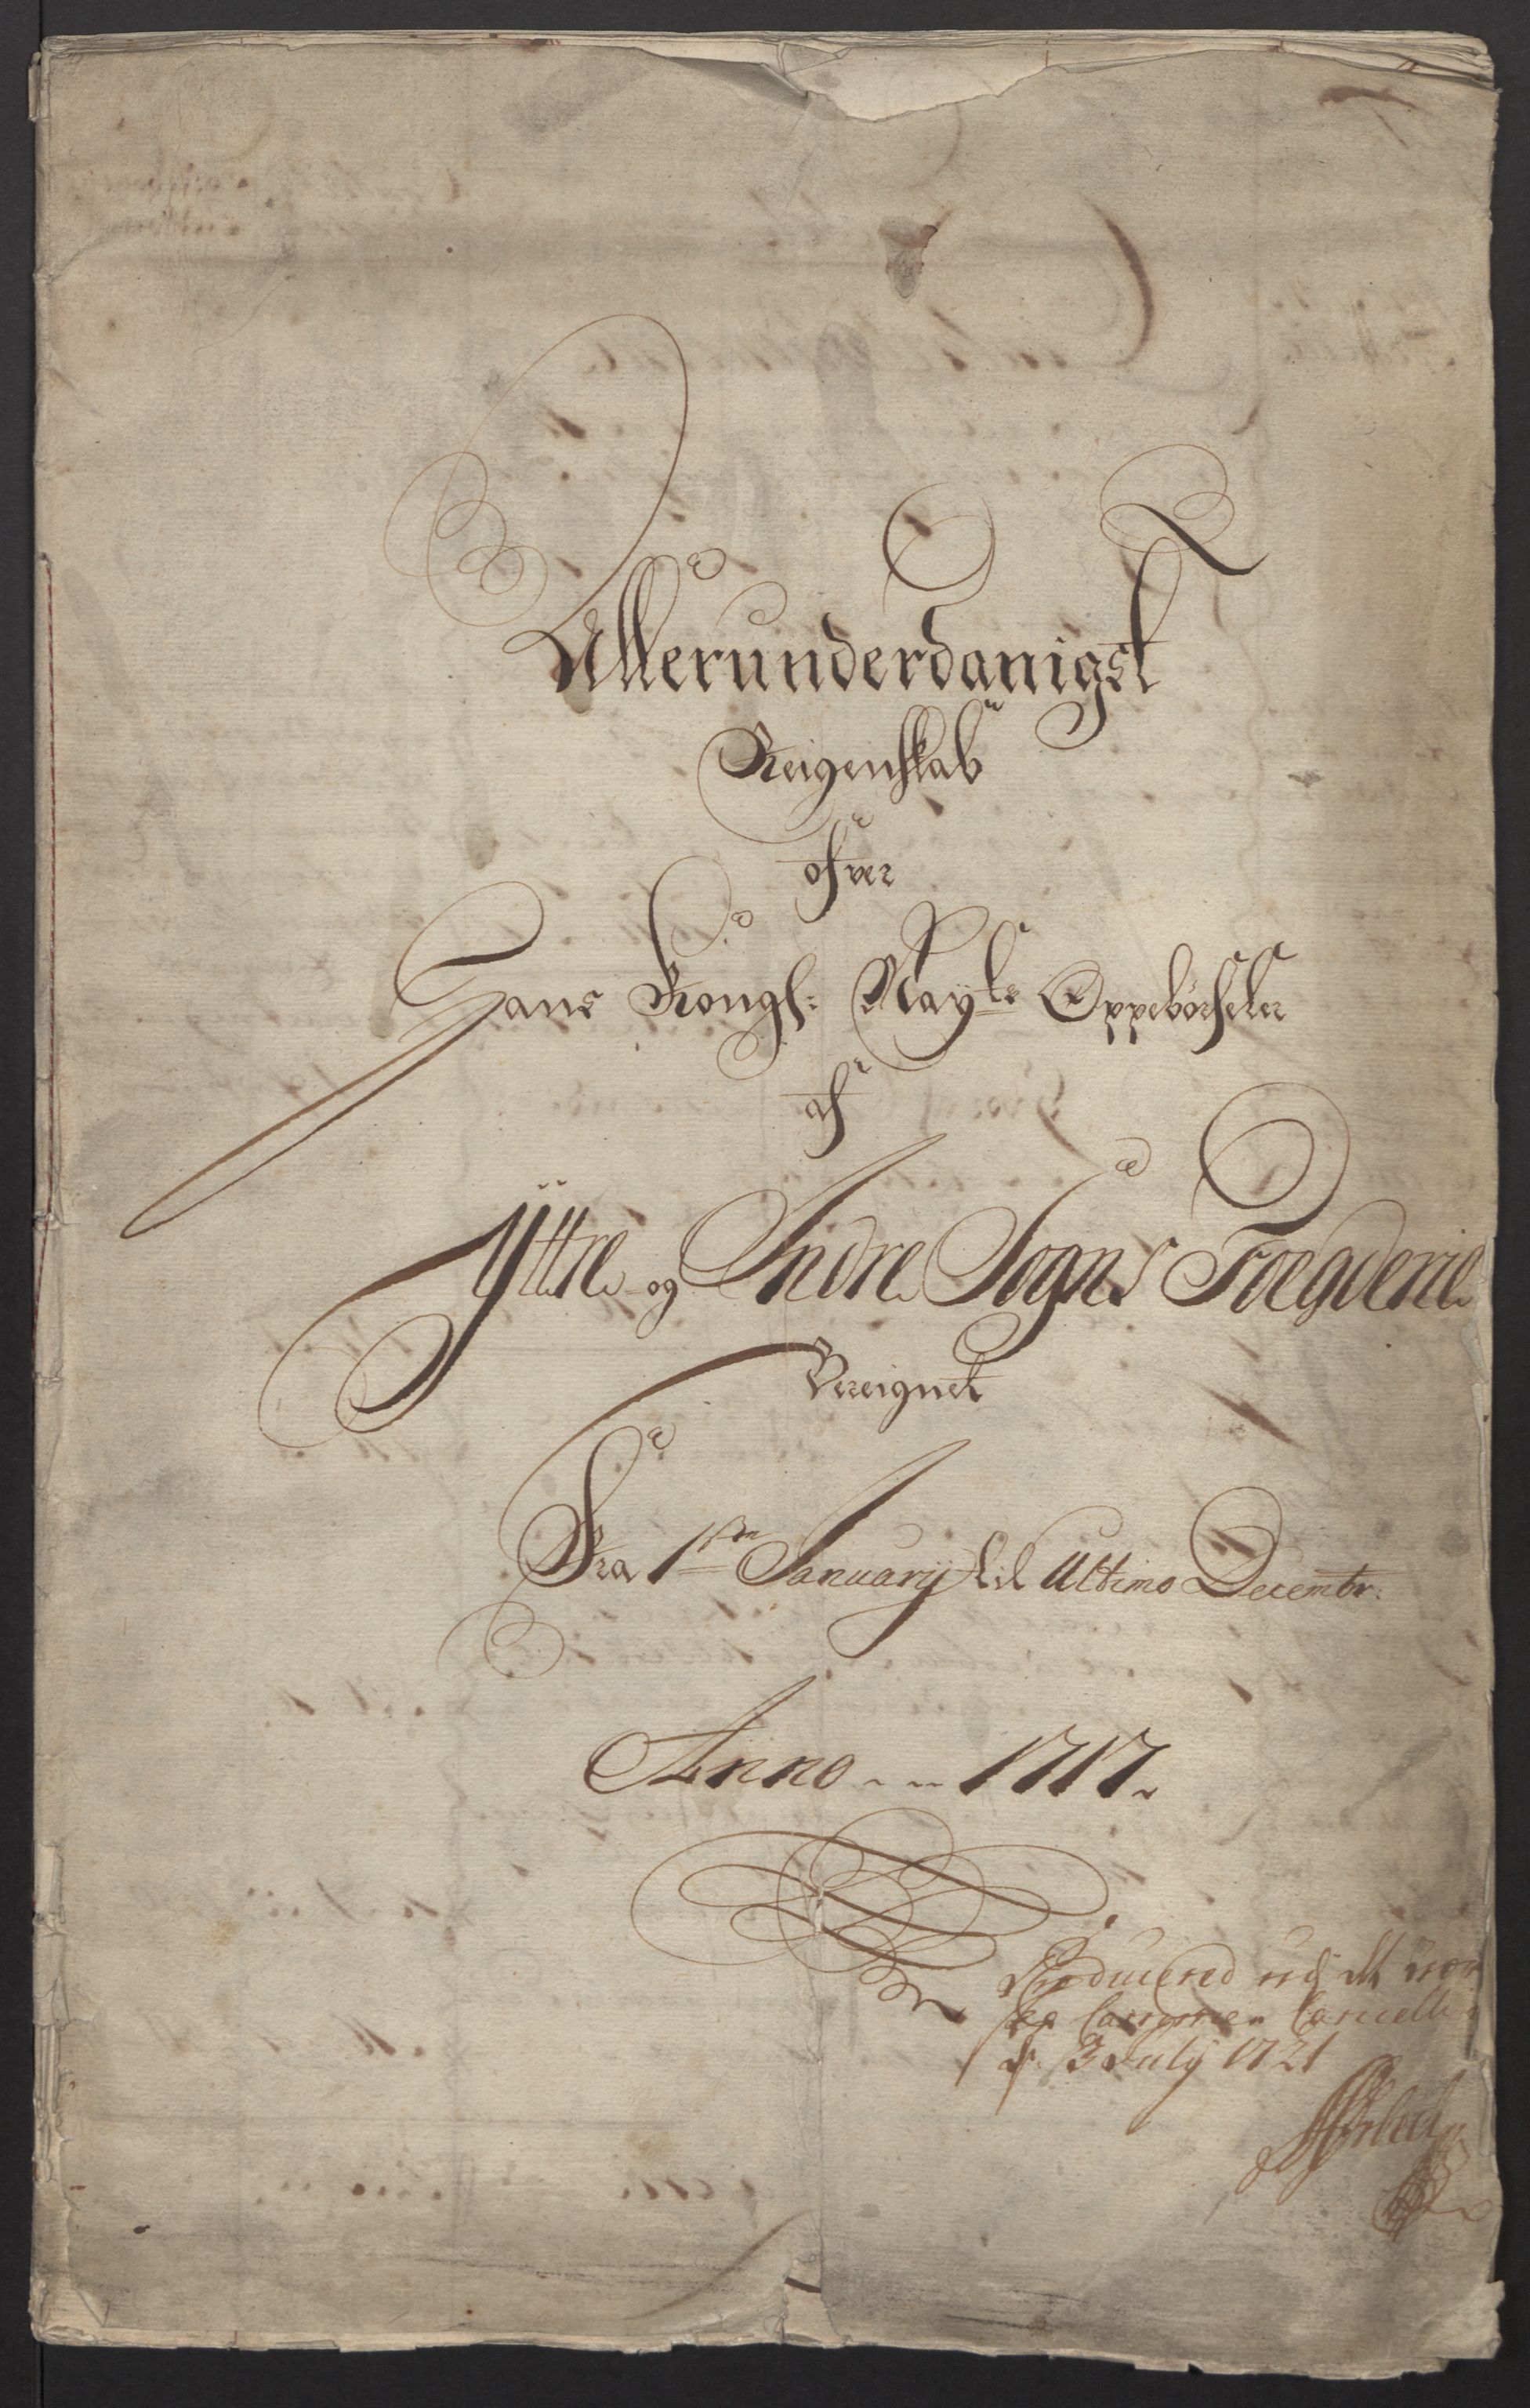 Allerunderdanigst
Reigenskab
ofver
Hans Kongl: Mayts Oppebörseler
af
Yttre og Indre Sogns Foegderie
Bereignet
Fra 1ste January til Ultimo Decembr:
Anno 1717
Produceret udj det
Cammer Cancellie
d. 3 July 1721